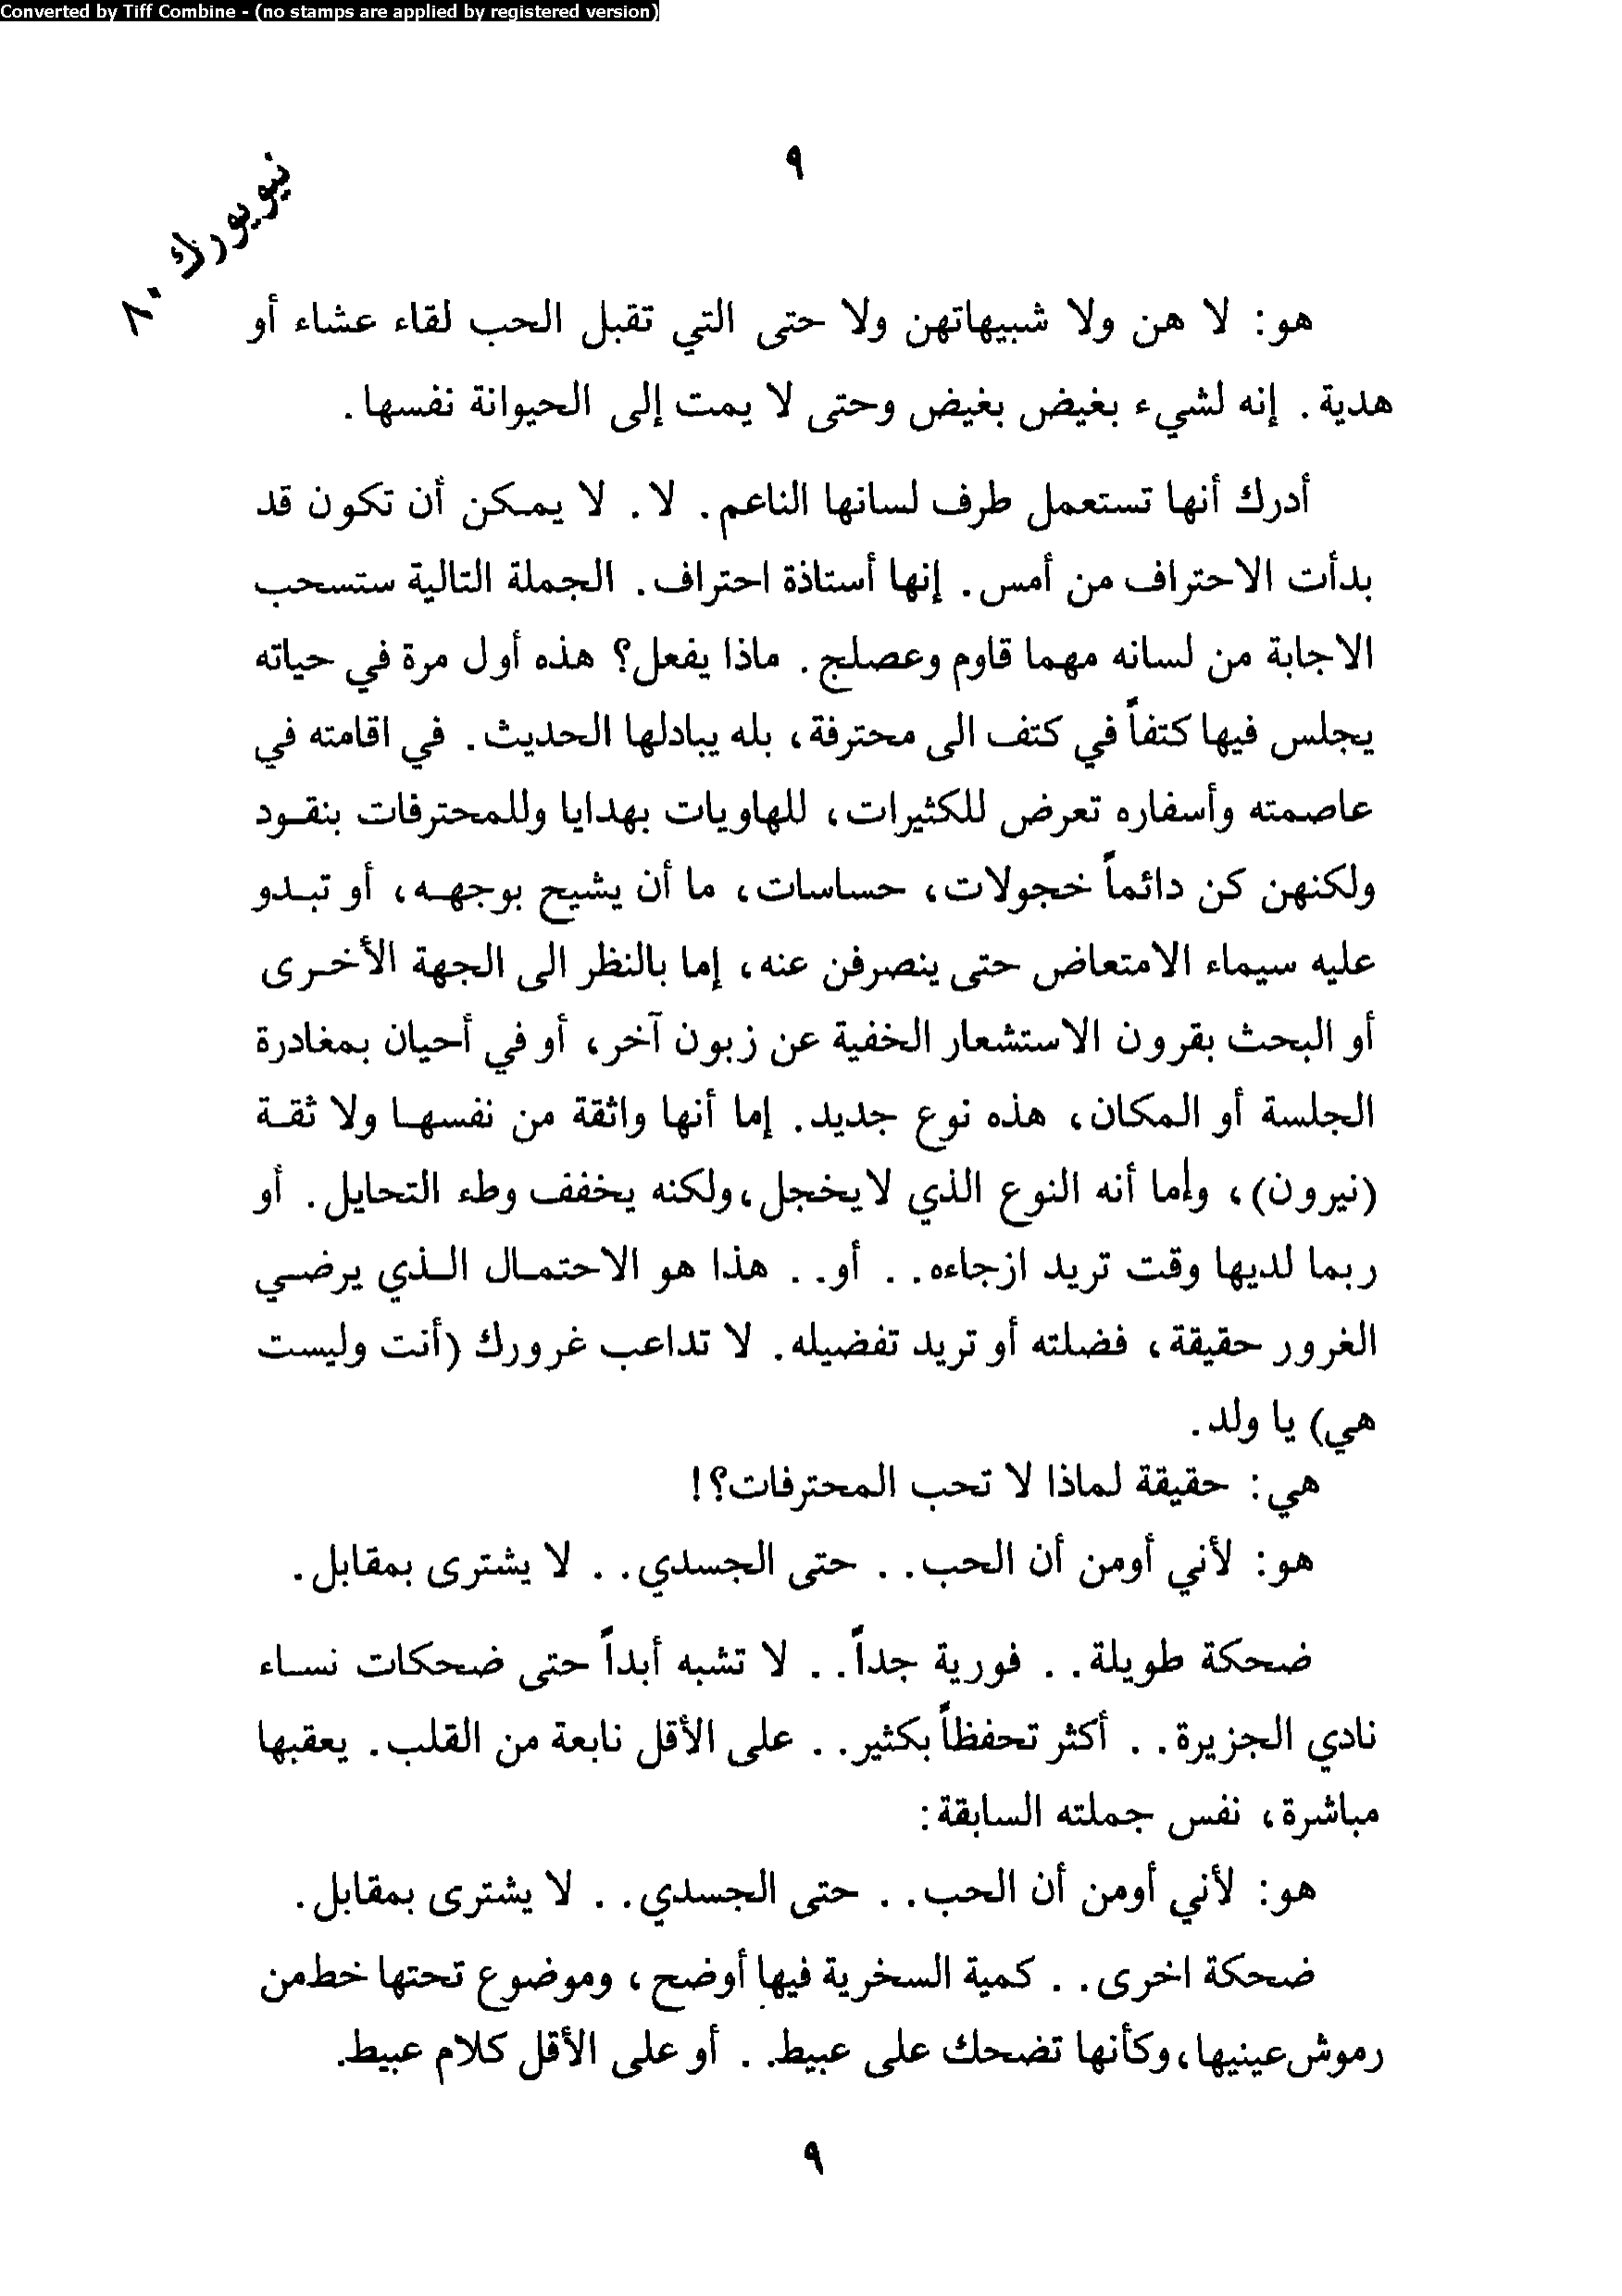 Converted by Tiff Combine - (no stamps are applied by registered version)
٩
نيويورك ٨٠
هو: لا هن ولا شبيهاتهن ولا حتى التي تقبل الحب لقاء عشاء أو
هدية. إنه لشيء بغيض بغيض وحتى لا يمت إلى الحيوانة نفسها.
أدرك أنها تستعمل طرف لسانها الناعم. لا. لا يمكن أن تكون قد
بدأت الاحتراف من أمس. إنها أستاذة احتراف. الجملة التالية ستسحب
الاجابة من لسانه مهما قاوم وعصلج. ماذا يفعل؟ هذه أول مرة في حياته
يجلس فيها كتفاً في كتف الى محترفة، بله يبادلها الحديث. في اقامته في
عاصمته وأسفاره تعرض للكثيرات، للهاويات بهدايا وللمحترفات بنقود
ولكنهن كن دائماً خجولات، حساسات، ما أن يشيح بوجهه، أو تبدو
عليه سيماء الامتعاض حتى ينصرفن عنه، إما بالنظر الى الجهة الأخرى
أو البحث بقرون الاستشعار الخفية عن زبون آخر، أو في أحيان بمغادرة
الجلسة أو المكان، هذه نوع جديد. إما أنها واثقة من نفسها ولا ثقة
(نيرون)، وإما أنه النوع الذي لا يخجل، ولكنه يخفف وطء التحايل. أو
ربما لديها وقت تريد ازجاءه.. أو.. هذا هو الاحتمال الذي يرضي
الغرور حقيقة، فضلته أو تريد تفضيله. لا تداعب غرورك (أنت وليست
هي) يا ولد.
هي: حقيقة لماذا لا تحب المحترفات؟!
هو: لأني أومن أن الحب.. حتى الجسدي.. لا يشترى بمقابل.
ضحكة طويلة.. فورية جداً.. لا تشبه أبداً حتى ضحكات نساء
نادي الجزيرة.. أكثر تحفظاً بكثير.. على الأقل نابعة من القلب. يعقبها
مباشرة، نفس جملته السابقة:
هو: لأني أومن أن الحب.. حتى الجسدي.. لا يشترى بمقابل.
ضحكة اخرى.. كمية السخرية فيها أوضح، وموضوع تحتها خط من
رموش عينيها، وكأنها تضحك على عبيط.. أو على الأقل كلام عبيط.
٩